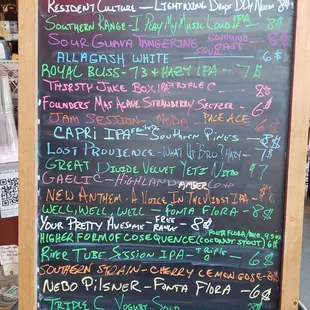 Resident Culture - Lightning Drops DDH Neipa 8$
Southern Range - I Play My Music Loud IPA - 8$
Sour Guava Tangerine Bombuha Sour
Allagash White - 6$
Royal Bliss - 73 & Hazy IPA - 7$
Thirsty Juke Box IPA Triple C - 8$
Founders Mas Agave Strawberry Seltzer - 6$
Jam Session - NoDa Pale Ale 6$
Capri IPA - Southern Pines - 8$
Lost Providence - What Up Bro? Hazy - 7$
Great Divide Velvet Yetz Nitro 9$
Gaelic - Highland Amber 6$
New Anthem - A Voice In IPA - 8$
Well, Well, Well - Fonta Flora - 8$
Your Pretty Awesome - Free Range - 8$
Higher Form of Cosequence (Coconut Stout) 6$
River Tube Session IPA - Triple C - 6$
Southern Strain - Cherry Lemon Gose - 8$
Nebo Pilsner - Fonta Flora - 6$
Triple C Yogurt